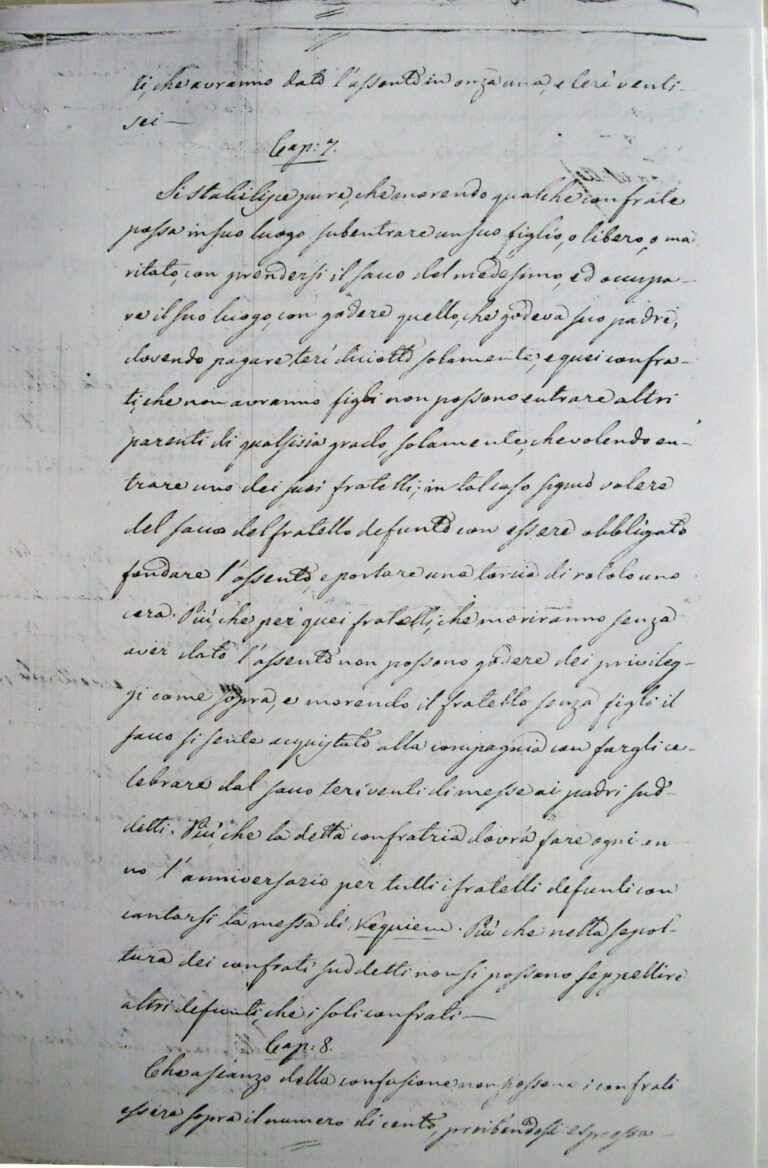 ti, che avranno dato l'assento in onza una, e terì venti-
sei —
Cap: 7.
Si stabilisce pure, che morendo qualche confrate
possa in suo luogo subentrare un suo figlio, o libero, o ma
ritato, con prendersi il sacco del medesimo, ed occupa-
re il suo luogo, con godere quello, che godeva suo padre,
dovendo pagare terì diciotto solamente, e quei confra-
ti, che non avranno figli non possono entrare altri
parenti di qualsisia grado, solamente, che volendo en-
trare uno dei suoi fratelli; in tal caso si può valere
del sacco del fratello defunto con essere obbligato
fondare l'assento, e portare una torcia di rotolo uno
cera. Più che per quei fratelli, che moriranno senza
aver dato l'assento non possono godere dei privileg-
gi come sopra, e morendo il fratello senza figli il
sacco si sente acquistato alla compagnia con fargli ce-
lebrare dal sacco terì venti di messe ai padri sud-
detti. Più che la detta confratria dovrà fare ogni an-
no l'anniversario per tutti i fratelli defunti con
cantarsi la messa di Requiem. Più che nella sepol-
tura dei confrati suddetti non si possono seppellire
altri defunti, che i soli confrati —
Cap: 8.
Che a scanzo della confusione non possono i confrati
essere sopra il numero di cento, proibendosi espressa-